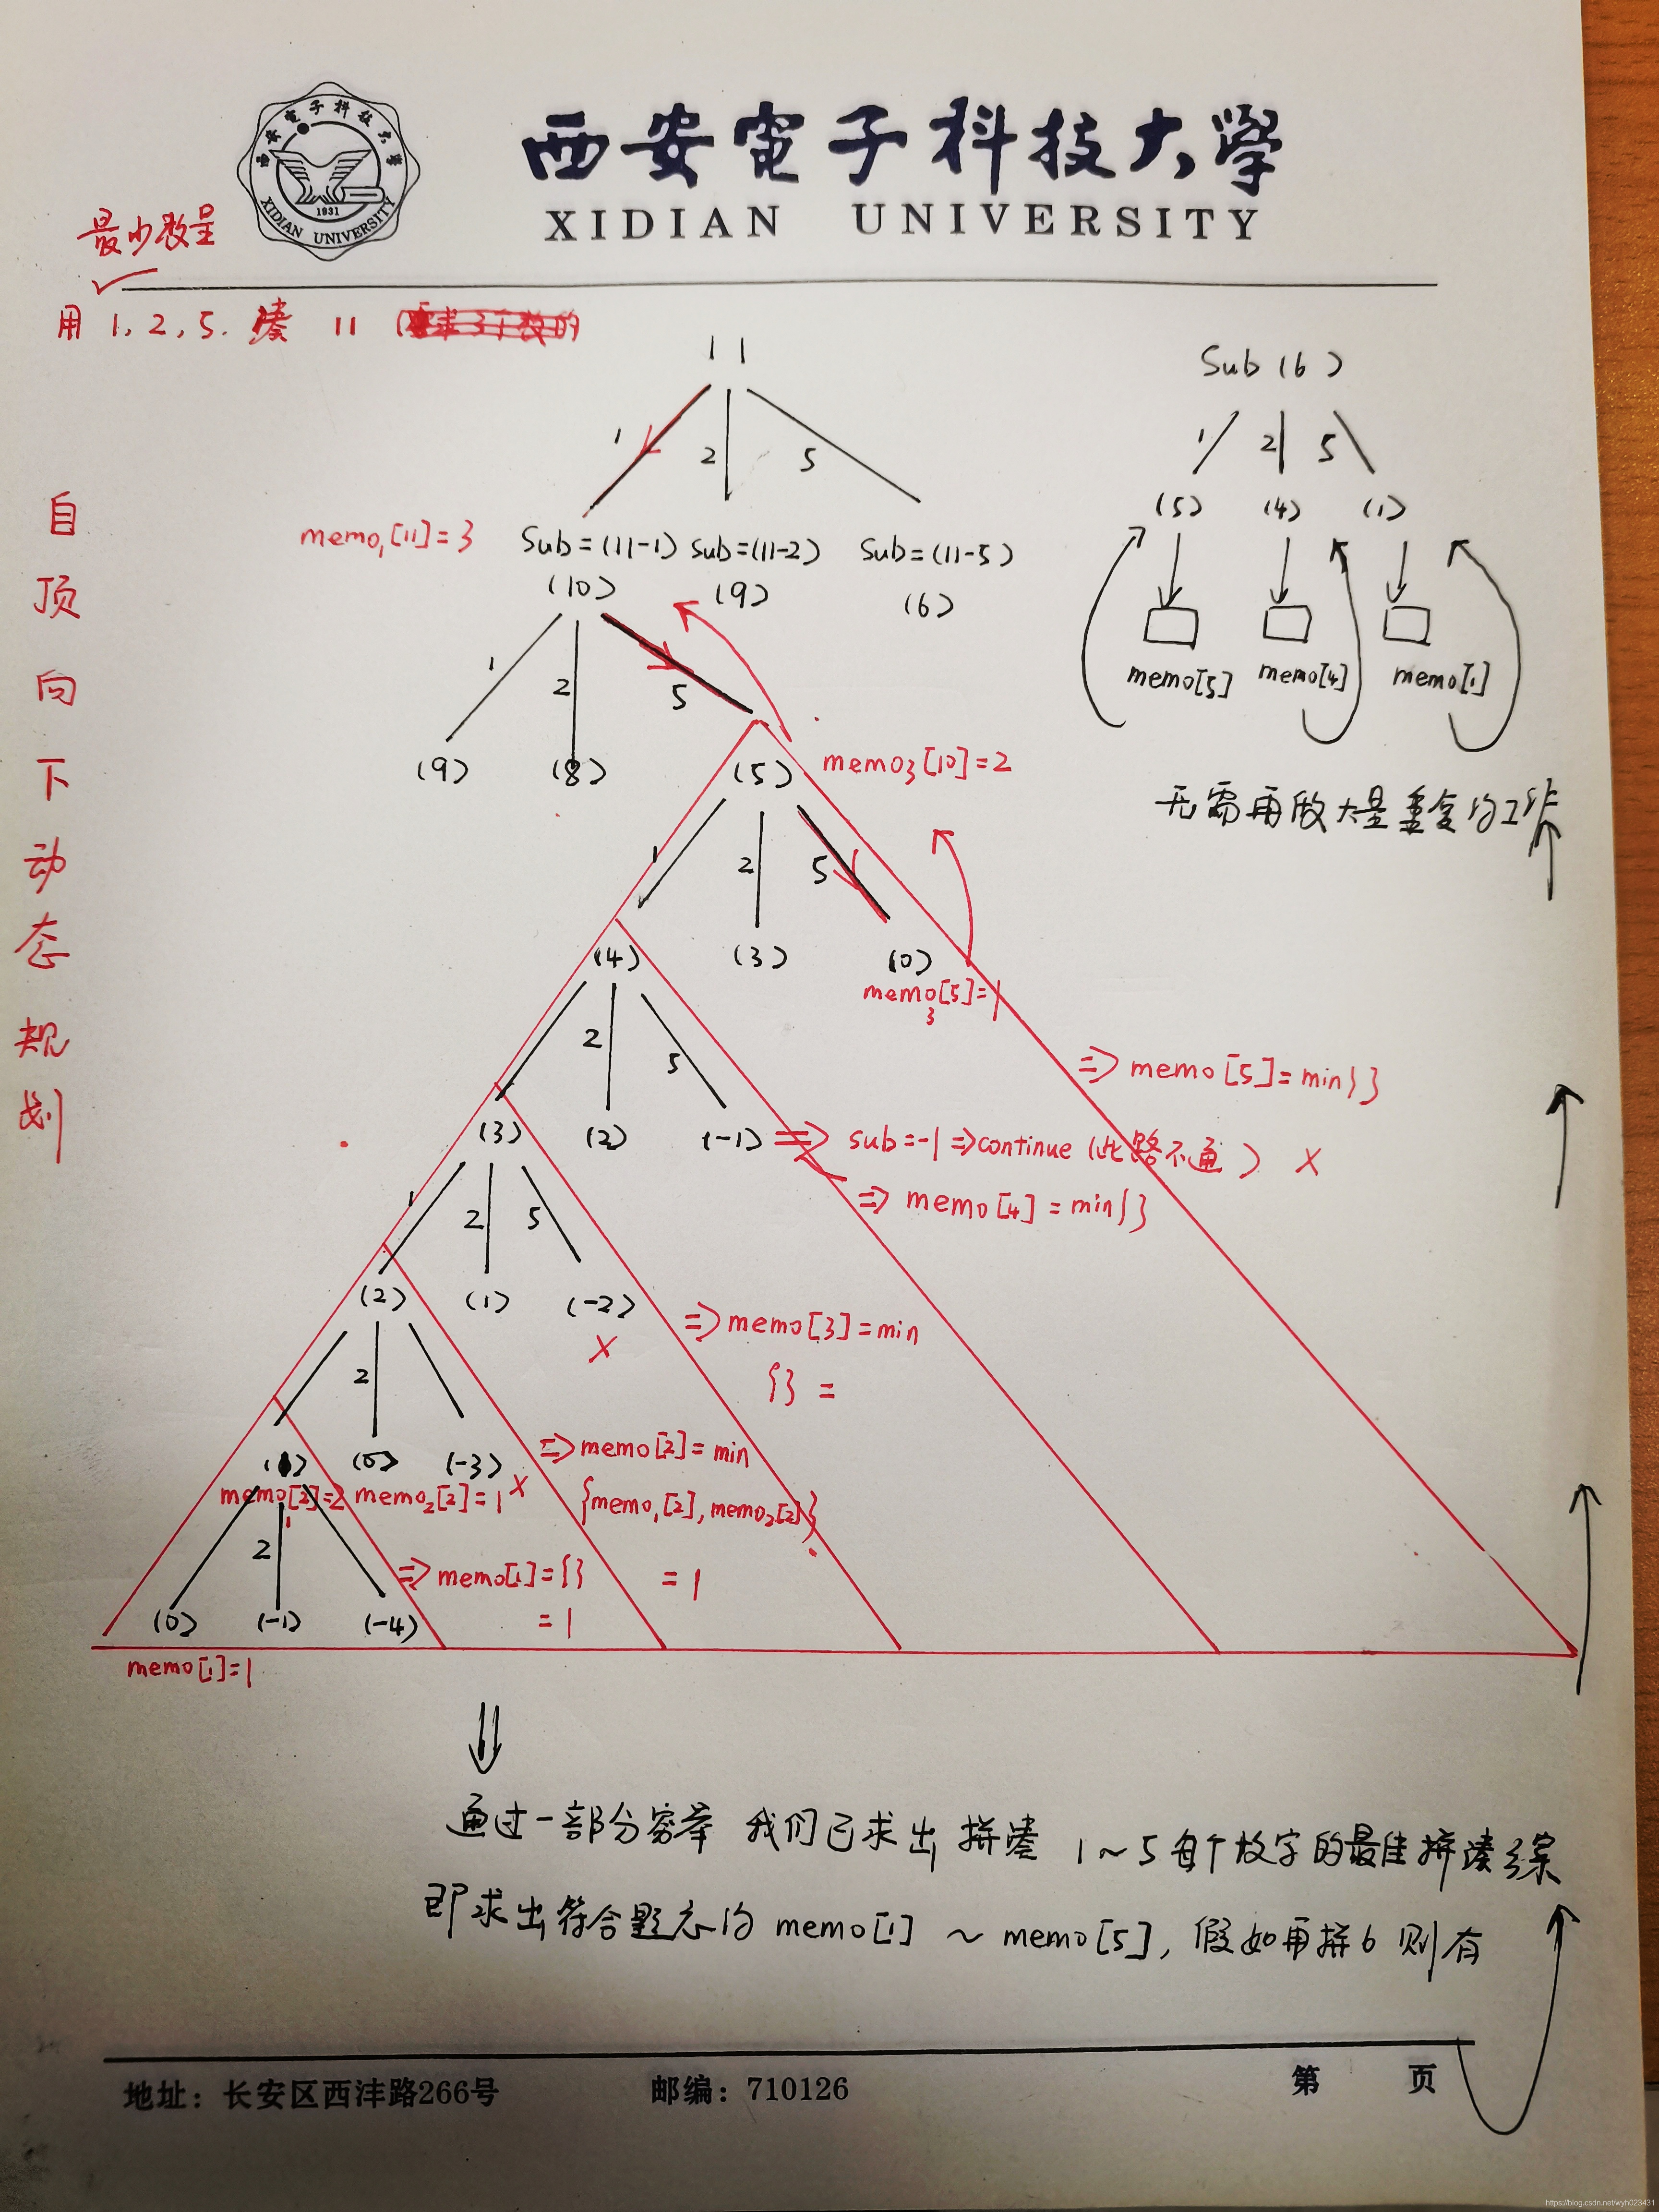 西安電子科技大學
西安電子科技大學
1931
XIDIAN UNIVERSITY
XIDIAN UNIVERSITY
最少数量
用 1, 2, 5. 凑 11
自顶向下动态规划
11
1 2 5
memo₁[11]=3
Sub=(11-1) Sub=(11-2) Sub=(11-5)
(10) (9) (6)
1 2 5
(9) (8) (5)
memo3[10]=2
1 2 5
(4) (3) (0)
memo3[5]=1
=> memo[5]=min{}
2 5
(3) (2) (-1) => sub=-1 => continue (此路不通) ×
=> memo[4]=min{}
1 2 5
(2) (1) (-2)
×
=> memo[3]=min
{} =
2
(1) (0) (-3) ×
memo1[2]=2 memo2[2]=1
=> memo[2]=min
{memo1[2], memo2[2]}
= 1
2
=> memo[1]={}
= 1
(0) (-1) (-4)
memo[1]=1
Sub(6)
1 2 5
(5) (4) (1)
memo[5] memo[4] memo[1]
无需再做大量重复的工作
通过一部分穷举 我们已求出 拼凑 1~5 每个数字的最佳拼凑
即求出符合题意的 memo[1] ~ memo[5], 假如再拼6 则有
地址：长安区西沣路266号 邮编：710126 第 页
https://blog.csdn.net/wyh023431